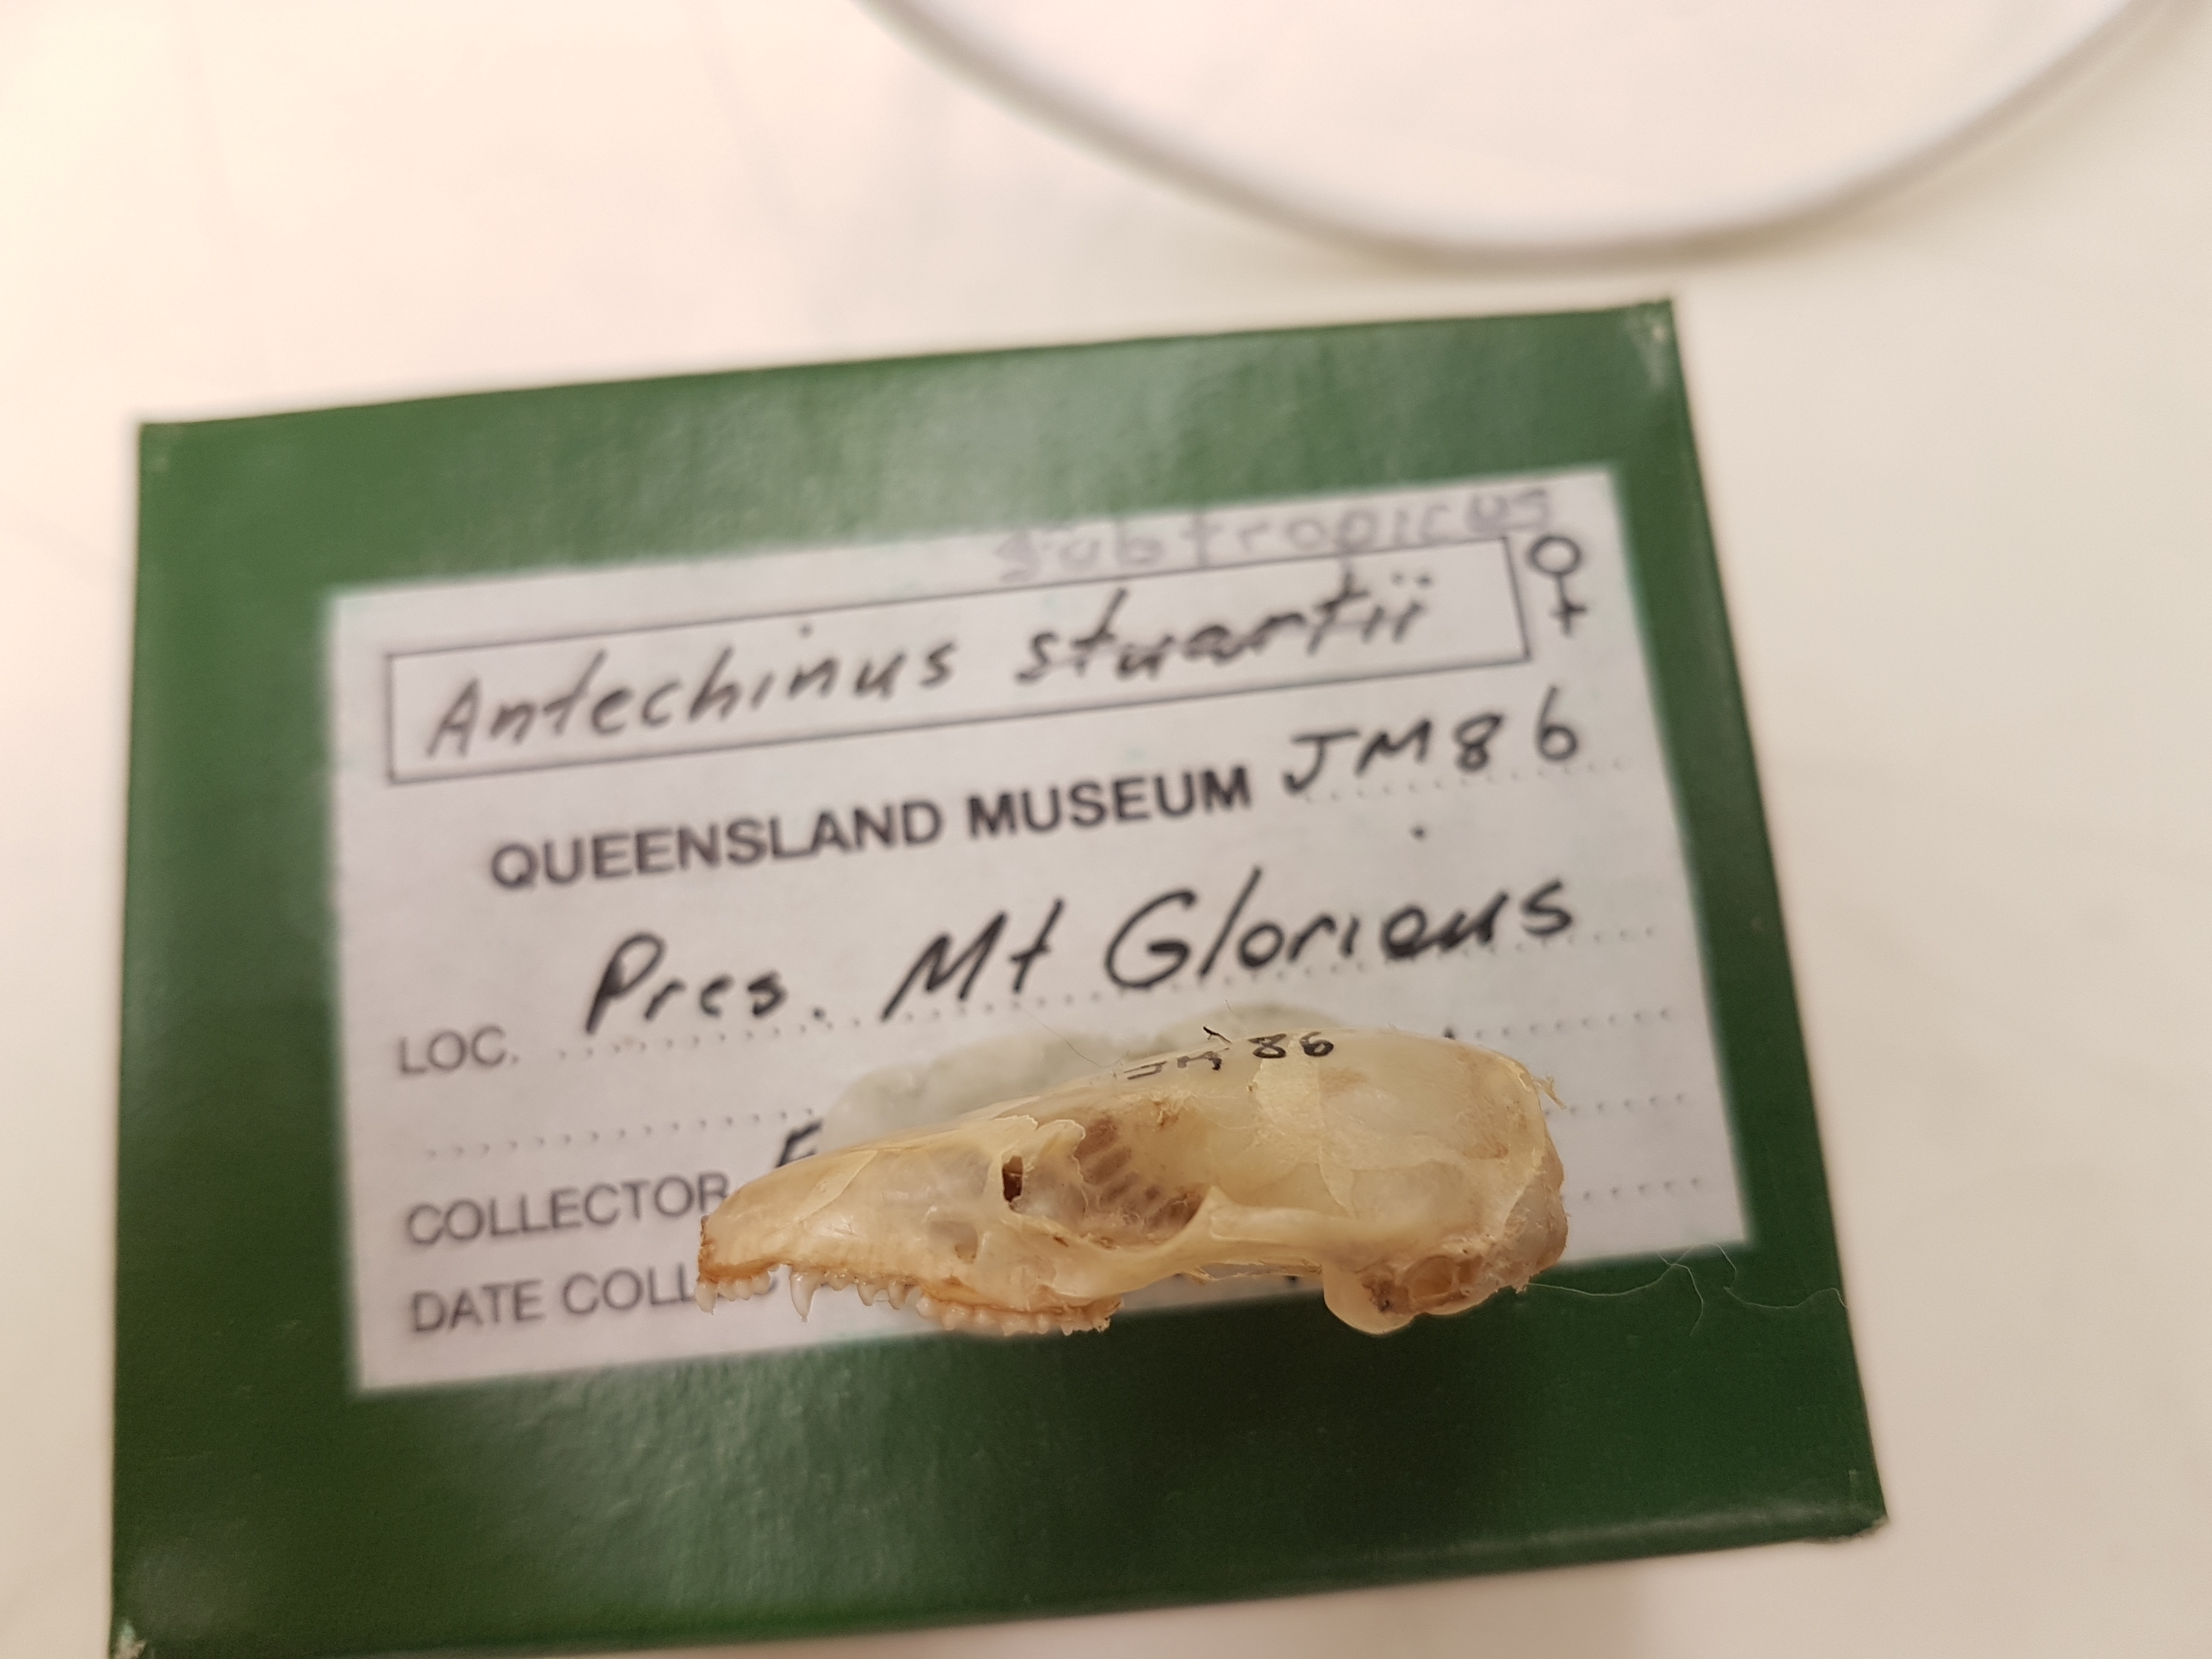 subtropicus
Antechinus stuartii ♀
QUEENSLAND MUSEUM JM86
LOC. Pres. Mt Glorious
JM 86
COLLECTOR
DATE COLL